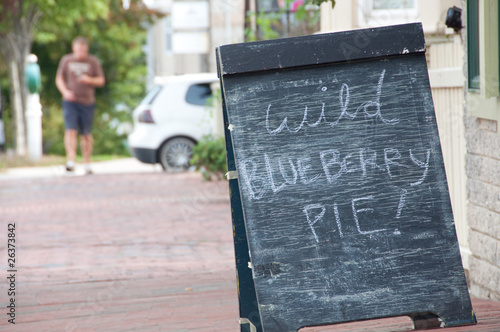 wild
BLUEBERRY
PIE!
26373842